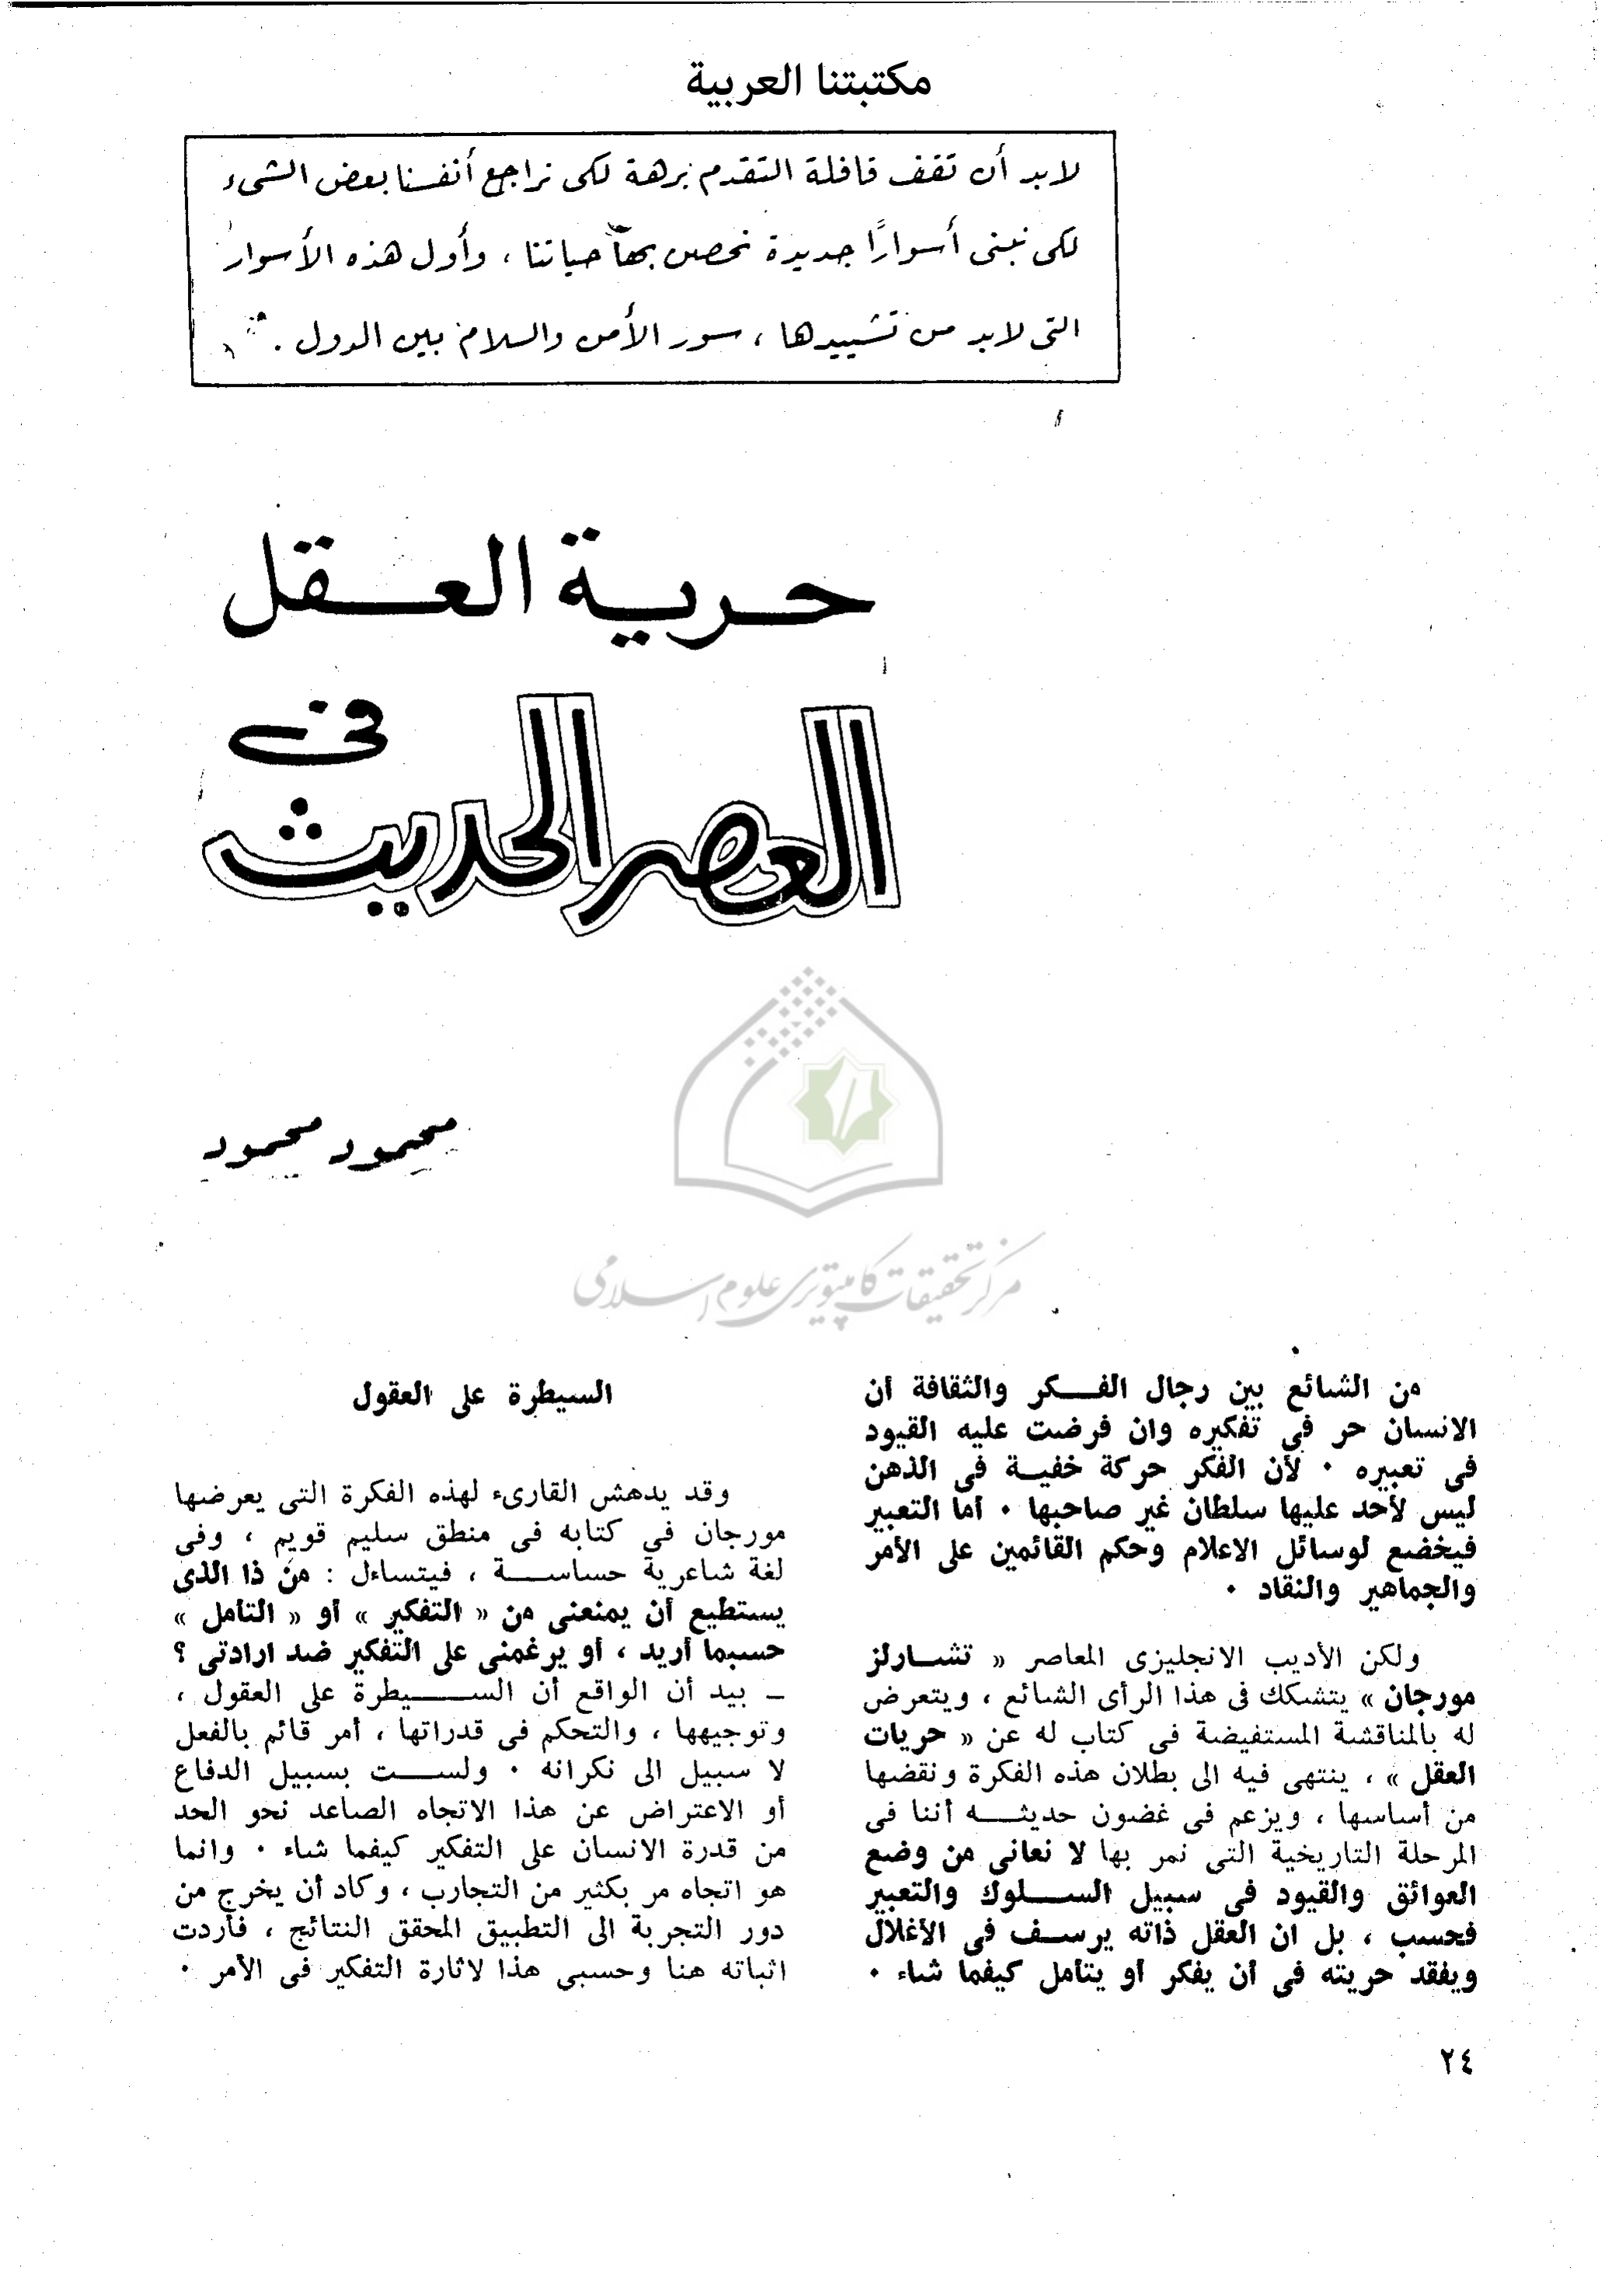 مكتبتنا العربية
لابد أن تقف قافلة التقدم برهة لكى نراجع أنفسنا بعض الشىء
لكى نبنى أسوارًا جديدة نحصن بها حياتنا ، وأول هذه الأسوار
التى لابد من تشييدها ، سور الأمن والسلام بين الدول .
حرية العقل
فى
العصر الحديث
محمود محمود
مركز تحقيقات كامپيوترى علوم اسلامى
من الشائع بين رجال الفكر والثقافة أن
الانسان حر فى تفكيره وان فرضت عليه القيود
فى تعبيره . لأن الفكر حركة خفية فى الذهن
ليس لأحد عليها سلطان غير صاحبها . أما التعبير
فيخضع لوسائل الاعلام وحكم القائمين على الأمر
والجماهير والنقاد .
ولكن الأديب الانجليزى المعاصر « تشارلز
مورجان » يتشكك فى هذا الرأى الشائع ، ويتعرض
له بالمناقشة المستفيضة فى كتاب له عن « حريات
العقل » ، ينتهى فيه الى بطلان هذه الفكرة ونقضها
من أساسها ، ويزعم فى غضون حديثه أننا فى
المرحلة التاريخية التى نمر بها لا نعانى من وضع
العوائق والقيود فى سبيل السلوك والتعبير
فحسب ، بل ان العقل ذاته يرسف فى الأغلال
ويفقد حريته فى أن يفكر أو يتأمل كيفما شاء .
السيطرة على العقول
وقد يدهش القارىء لهذه الفكرة التى يعرضها
مورجان فى كتابه فى منطق سليم قويم ، وفى
لغة شاعرية حساسة ، فيتساءل : من ذا الذى
يستطيع أن يمنعنى من « التفكير » أو « التأمل »
حسبما أريد ، أو يرغمنى على التفكير ضد ارادتى ؟
ـ بيد أن الواقع أن السيطرة على العقول ،
وتوجيهها ، والتحكم فى قدراتها ، أمر قائم بالفعل
لا سبيل الى نكرانه . ولست بسبيل الدفاع
أو الاعتراض عن هذا الاتجاه الصاعد نحو الحد
من قدرة الانسان على التفكير كيفما شاء . وانما
هو اتجاه مر بكثير من التجارب ، وكاد أن يخرج من
دور التجربة الى التطبيق المحقق النتائج ، فأردت
اثباته هنا وحسبى هذا لاثارة التفكير فى الأمر .
٢٤